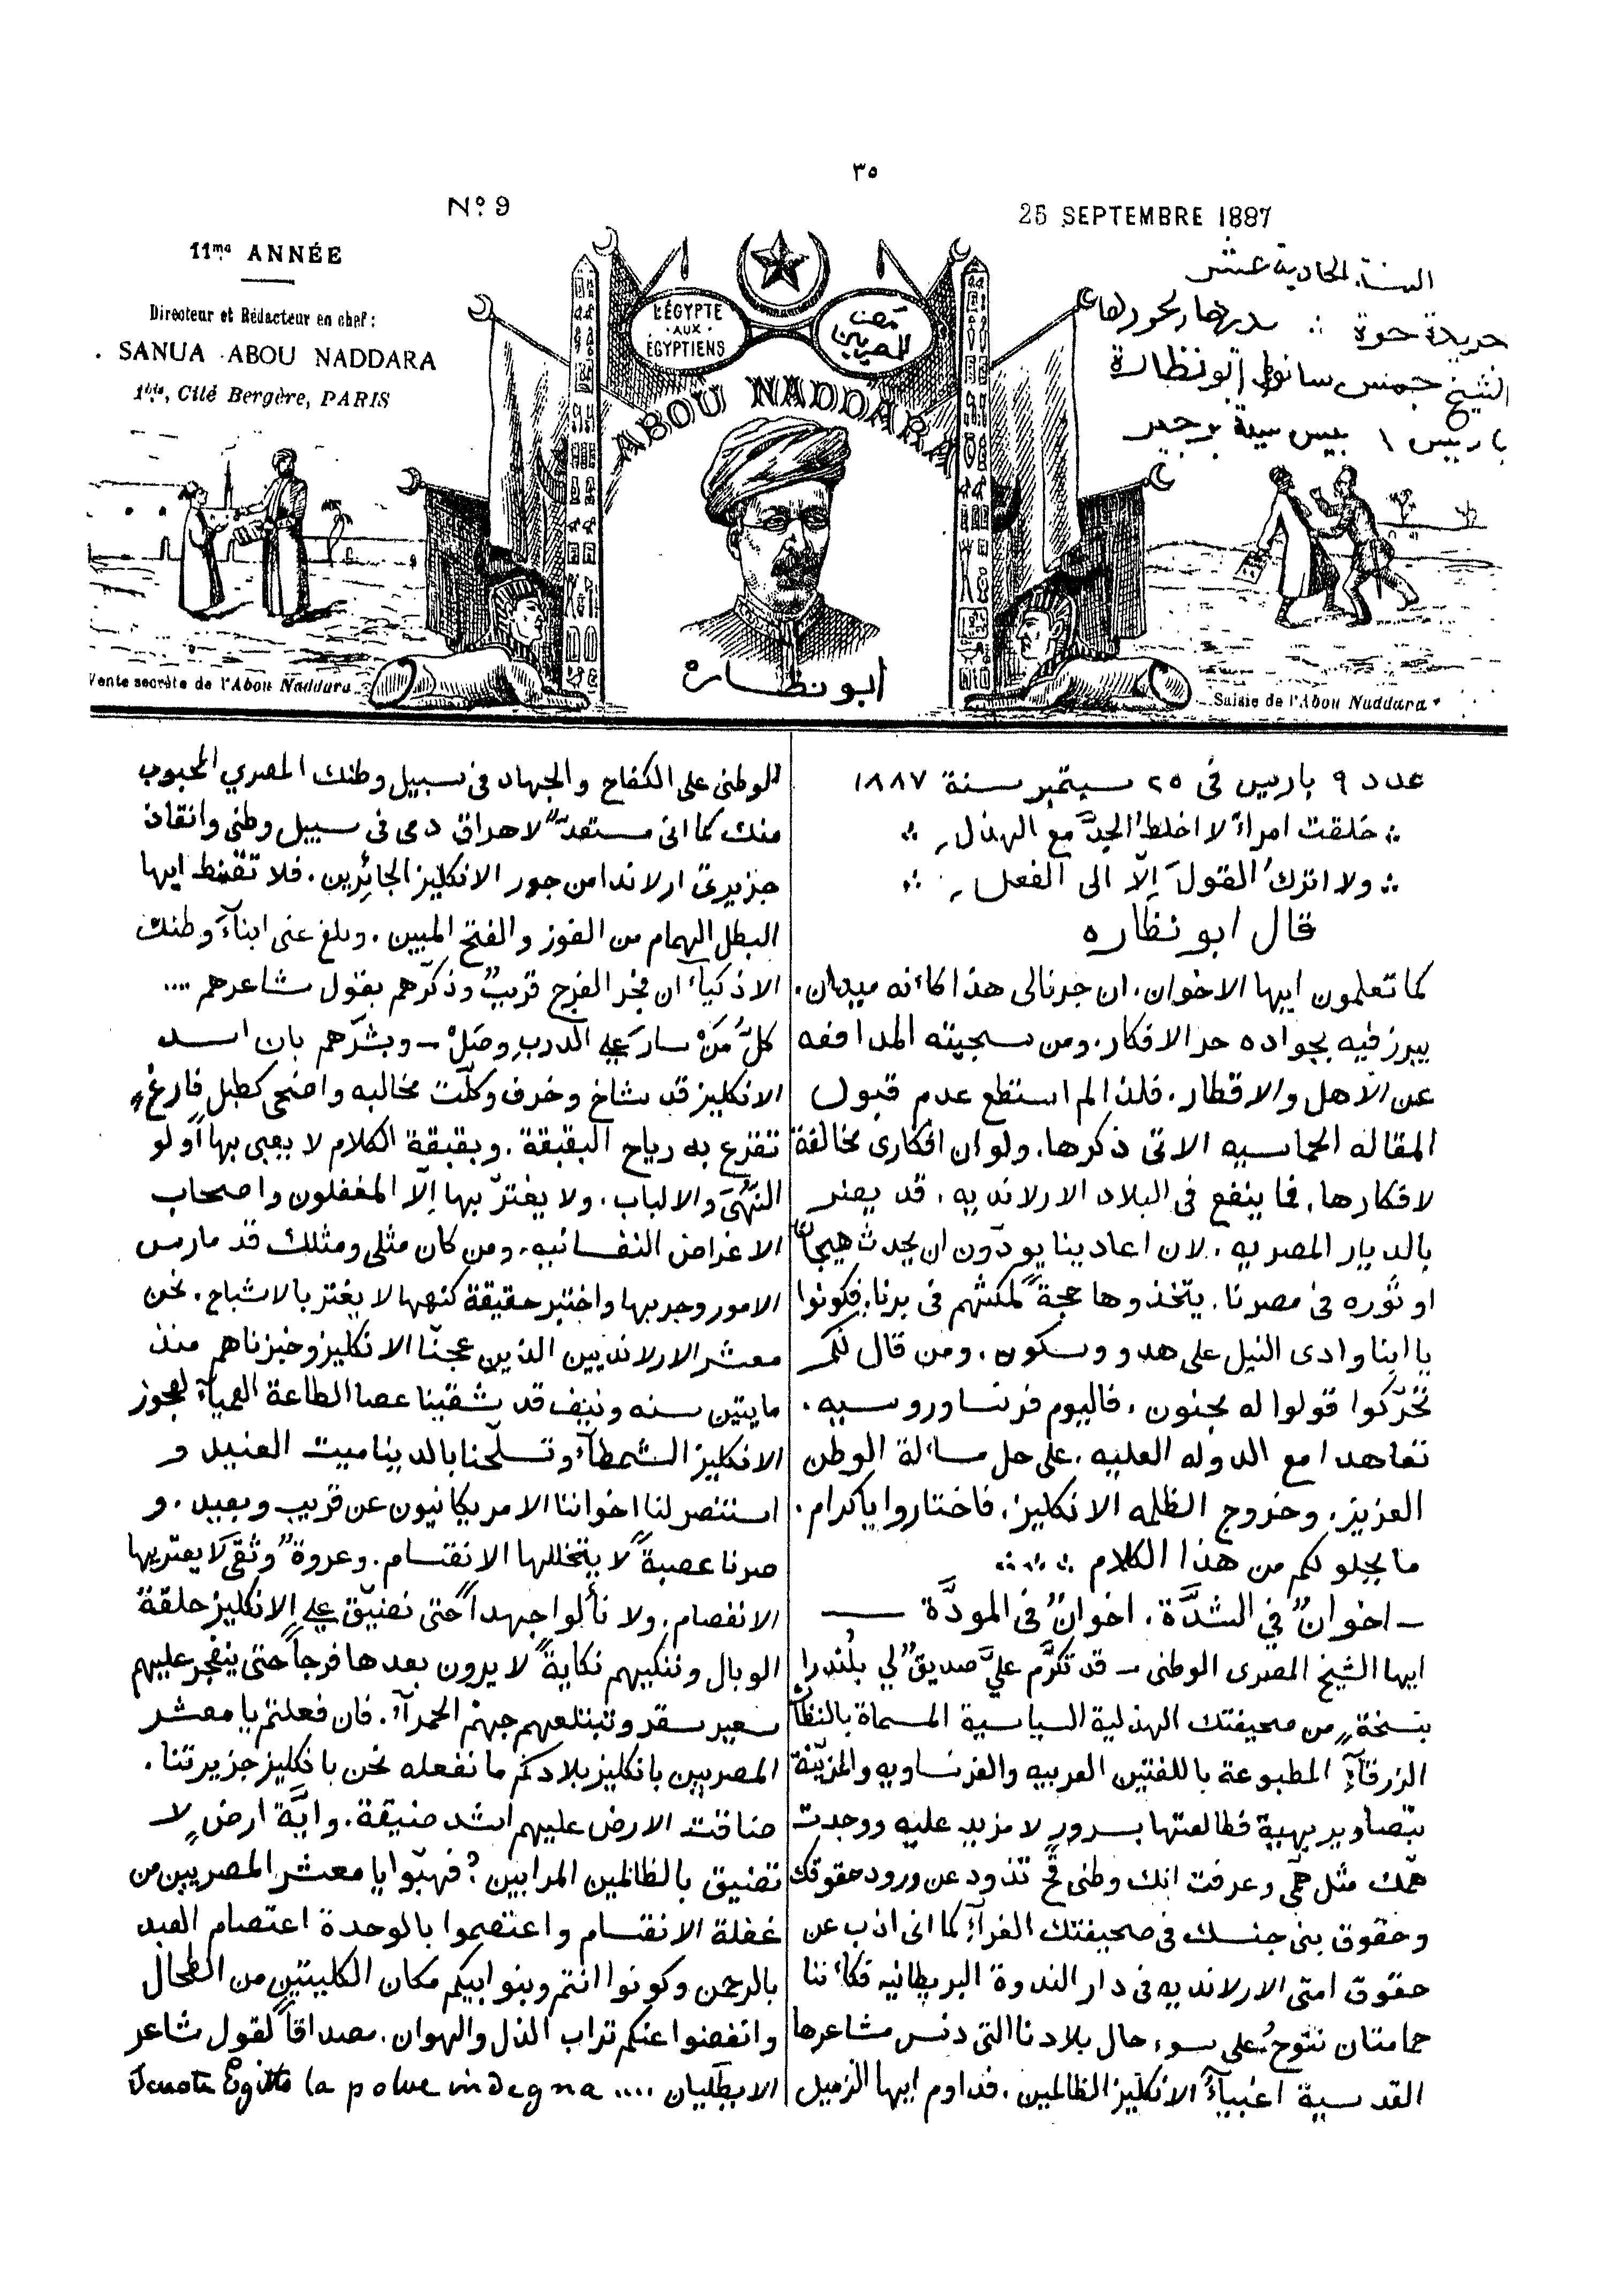 ٣٥
Nº 9
25 SEPTEMBRE 1887
11me ANNÉE
Directeur et Rédacteur en chef:
SANUA ABOU NADDARA
1bis, Cité Bergère, PARIS
السنة الحادية عشر
جريدة حرة ∴ مديرها ومحررها
الشيخ جمس سانوا ابو نظارة
باريس ١ بيس سيتة برجير
L'ÉGYPTE
AUX
ÉGYPTIENS
مصر
للمصريين
ABOU NADDARA
ابو نظاره
Vente secrète de l'Abou Naddara
Saisie de l'Abou Naddara
عدد ٩ باريس في ٢٥ سبتمبر سنة ١٨٨٧
∴ خلقت امراءً لا اخلطُ الجدَّ مع الهذل ∴
∴ ولا اتركُ القولَ إلّا الى الفعل ∴
قال ابو نظاره
كما تعلمون ايها الاخوان. ان جرنالى هذا كانه ميدان.
يبرز فيه بجواده حر الافكار. ومن سجيته المدافعه
عن الأهل والاقطار. فلذا لم استطع عدم قبول
المقاله الحماسيه الاتى ذكرها. ولو ان افكارى مخالفة
لافكارها. فما ينفع فى البلاد الارلانديه. قد يضر
بالديار المصريه. لان اعادينا يودّون ان يحدث هيجاناً
او ثوره فى مصرنا. يتخذوها حجةً لمكثهم فى برنا. فكونوا
يا ابنا وادى النيل على هدو وسكون. ومن قال لكم
تحرّكوا قولوا له مجنون. فاليوم فرنسا وروسيه.
تعاهدا مع الدوله العليه. على حل مسالة الوطن
العزيز. وخروج الظلمه الانكليز. فاختاروا يا كرام.
ما يحلو لكم من هذا الكلام ∴
— اخوانٌ في الشدَّة. اخوانٌ فى المودَّة —
ايها الشيخ المصرى الوطنى — قد تكرَّم عليَّ صديقٌ لي بلُندرا
بنسخةٍ من صحيفتك الهذلية السياسية المسماة بالنظارة
الزرقآءِ المطبوعة باللغتين العربيه والفرنساويه والمزيّنة
بتصاوير بهية فطالعتها بسرورٍ لا مزيد عليه ووجدت
همّك مثل همّي وعرفت انك وطنى قحّ تذود عن ورود حقوقك
وحقوق بنى جنسك فى صحيفتك الغرآءِ كما انى اذب عن
حقوق امتى الارلانديه فى دار الندوة البريطانيه فكأننا
حمامتان ننوحُ على سوء حال بلادنا التى دنس مشاعرها
القدسية اغبيآءُ الانكليز الظالمين. فداوم ايها الزميل
الوطنى على الكفاح والجهاد فى سبيل وطنك المصري المحبوب
منك كما انى مستعدٌ لاهراق دمى فى سبيل وطنى وانقاذ
جزيرتى ارلاندا من جور الانكليز الجائرين. فلا تقنط ايها
البطل الهمام من الفوز والفتح المبين. وبلغ عنى ابنآءَ وطنك
الاذكيآء ان فجر الفرج قريبٌ وذكّرهم بقول شاعرهم ....
كلُّ مَنْ سار علي الدربِ وصَلْ — وبشّرهم بان اسد
الانكليز قد شاخ وخرف وكلّت مخالبه واضحى كطبل فارغٍ
تقرع به رياح البقبقة. وبقبقة الكلام لا يعبى بها أولو
النُهَى والالباب. ولا يغترّ بها إلّا المغفلون واصحاب
الاغراض النفسانيه. ومن كان مثلى ومثلك قد مارس
الامور وجربها واختبر حقيقة كنهها لا يغتر بالاشباح. نحن
معشر الارلانديين الذين عجنّا الانكليز وخبزناهم منذ
مايتين سنه ونيف قد شقينا عصا الطاعة العميآءِ لعجوز
الانكليز الشمطآءِ وتسلّحنا بالديناميت العنيد و
استنصر لنا اخواننا الامريكانيون عن قريب وبعيد. و
صرنا عصبةً لا يتخللها الانقسام. وعروةً وثقى لا يعتريها
الانفصام. ولا نألوا جهداً حتى نضيّق علي الانكليز حلقة
الوبال وننكيهم نكايةً لا يرون بعدها فرجاً حتى ينفجر عليهم
سعير سقر وتبتلعهم جهنم الحمرآء. فان فعلتم يا معشر
المصريين بانكليز بلادكم ما نفعله نحن بانكليز جزيرتنا.
ضاقت الارض عليهم اشد ضيقة. وايّة ارضٍ لا
تضيق بالظالمين المرابين؟ فهبّوا يا معشر المصريين من
غفلة الانقسام واعتصموا بالوحدة اعتصام العبد
بالرحمن وكونوا انتم وبنو ابيكم مكان الكليتين من الطحال
وانفضوا عنكم تراب الذل والهوان. مصداقاً لقول شاعر
الايطليان .... Scuoti Egitto la polve indegna